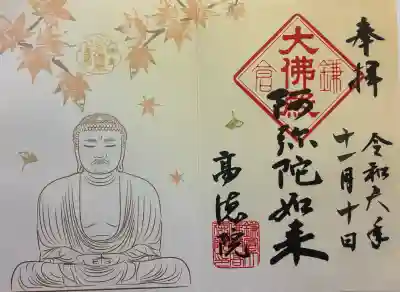 奉拝
令和六年
十一月十日
大佛殿
鎌倉
阿弥陀如来
高徳院